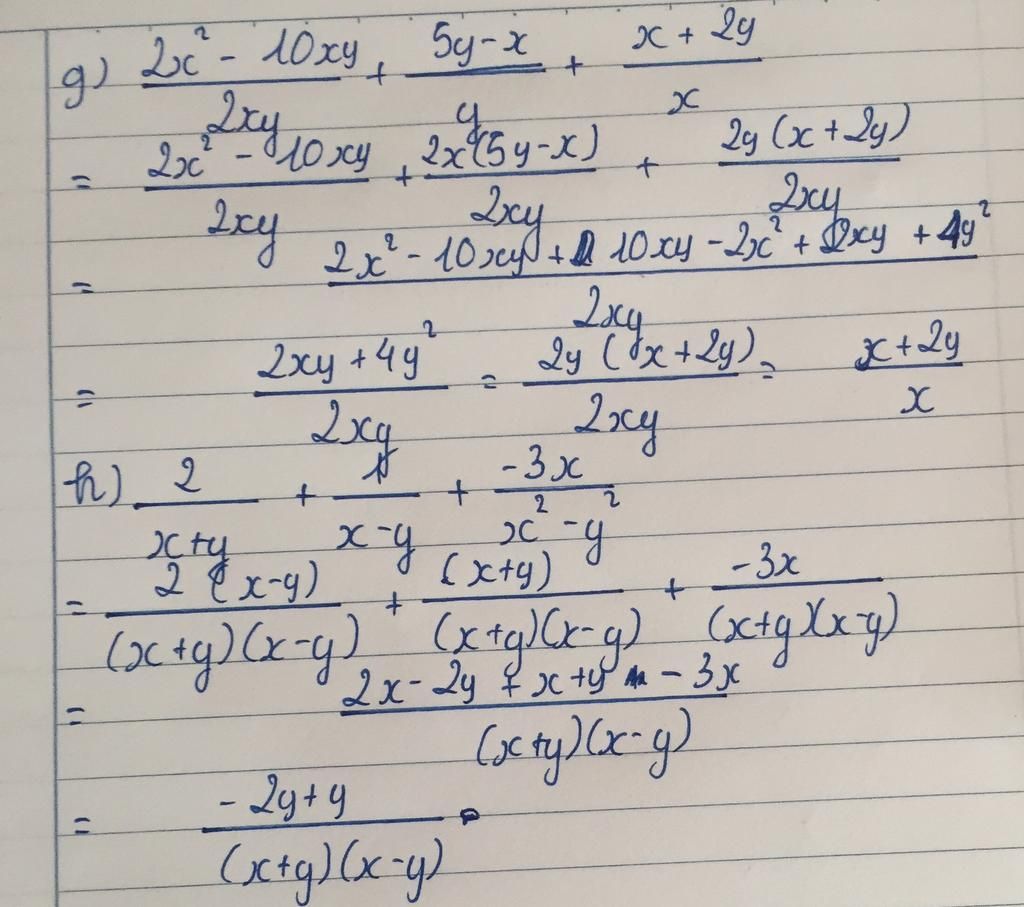 g) (2x² - 10xy)/(2xy) + (5y - x)/y + (x + 2y)/x
= (2x² - 10xy)/(2xy) + (2x(5y - x))/(2xy) + (2y(x + 2y))/(2xy)
= (2x² - 10xy + 10xy - 2x² + 2xy + 4y²)/(2xy)
= (2xy + 4y²)/(2xy) = (2y(x + 2y))/(2xy) = (x + 2y)/x
h) 2/(x+y) + 1/(x-y) + (-3x)/(x² - y²)
= (2(x-y))/((x+y)(x-y)) + (x+y)/((x+y)(x-y)) + (-3x)/((x+y)(x-y))
= (2x - 2y + x + y - 3x)/((x+y)(x-y))
= (-2y + y)/((x+y)(x-y))